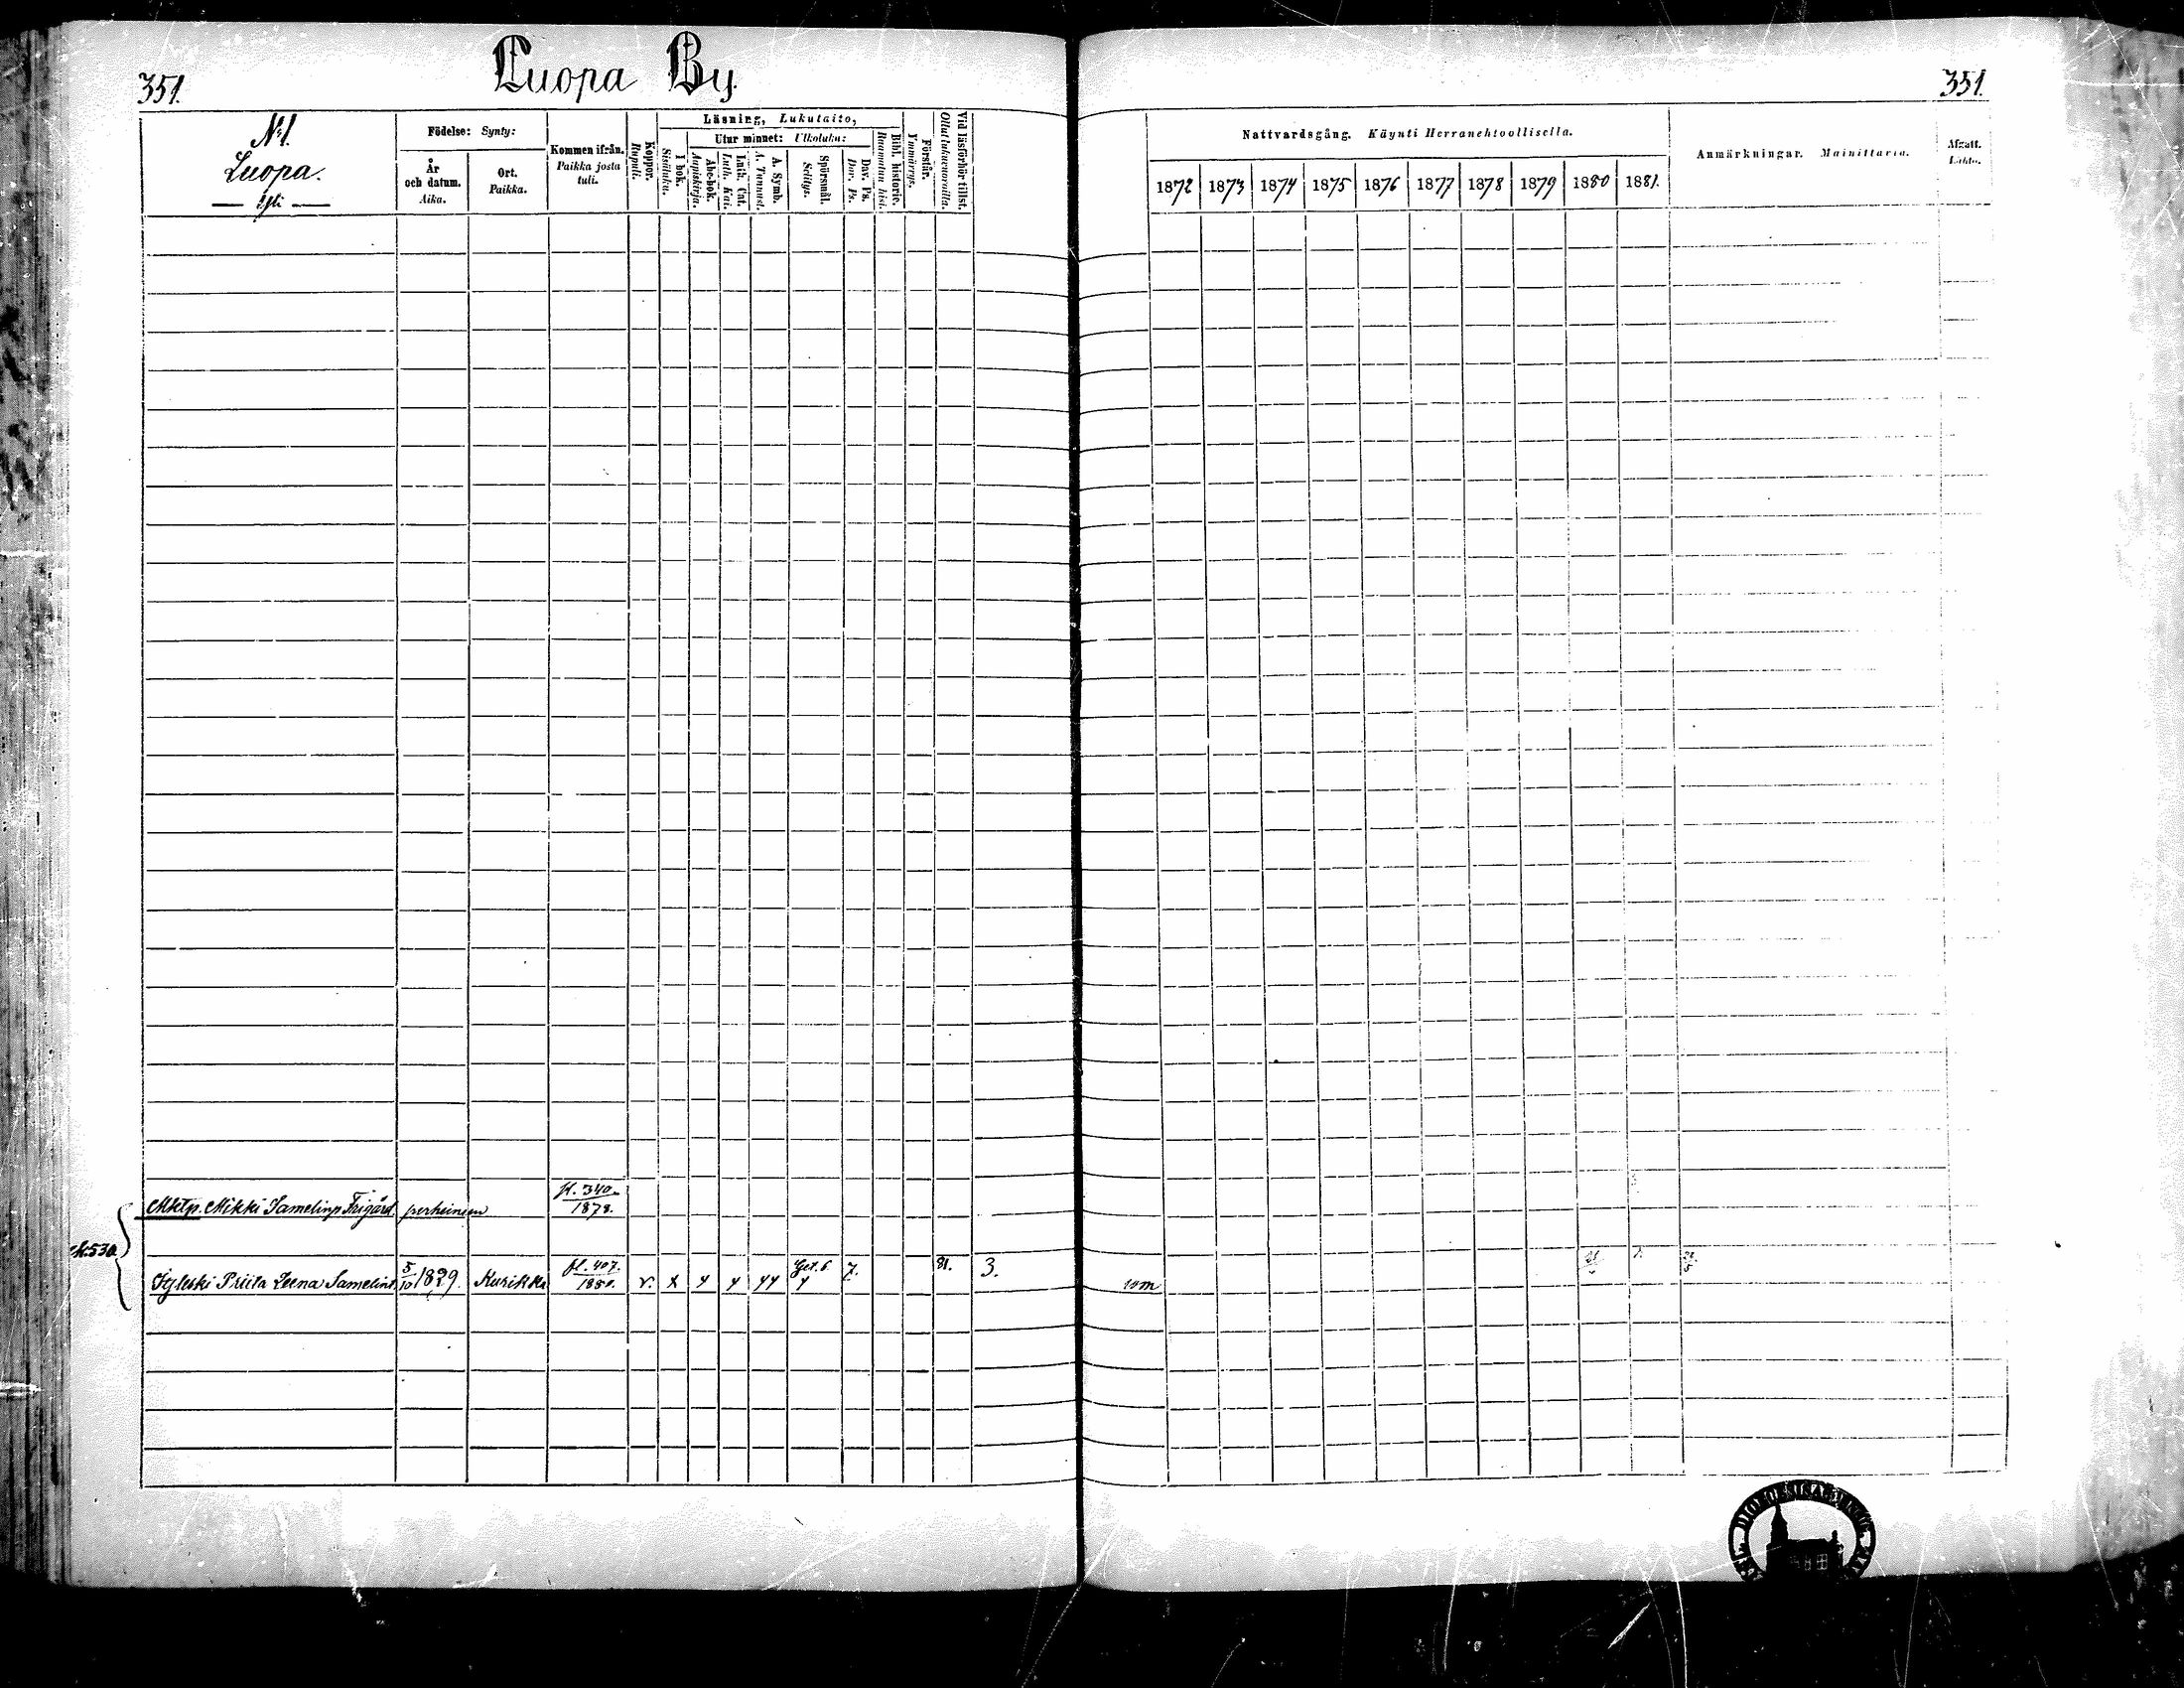 351.
Luopa By.
351.
N:1.
Luopa.
Födelse: Synty:
År och datum. Aika.
Ort. Paikka.
Kommen ifrån. Paikka josta tuli.
Koppor. Rupuli.
Läsning, Lukutaito,
I bok. Sisäluku.
Utur minnet: Ulkoluku:
Abc-bok. Aapiskirja.
Luth. Cat. Luth. Kat.
A. Symb. A. Tunnust.
Spörsmål. Selitys.
Dav. Ps. Dav. Ps.
Bibl. historie. Raamatun hist.
Förstår. Ymmärrys.
Vid läsförhör tillst. Ollut lukuvuorolla.
Nattvardsgång. Käynti Herranehtoollisella.
1872 1873 1874 1875 1876 1877 1878 1879 1880 1881.
Anmärkningar. Mainittavia.
Afgått. Lähtö.
Mikki perheineen fl. 340. 1878.
530
Priita Leena 5/10 1829. Kurikka fl. 407. 1880. v. x y y yy y 7. 81. 3.